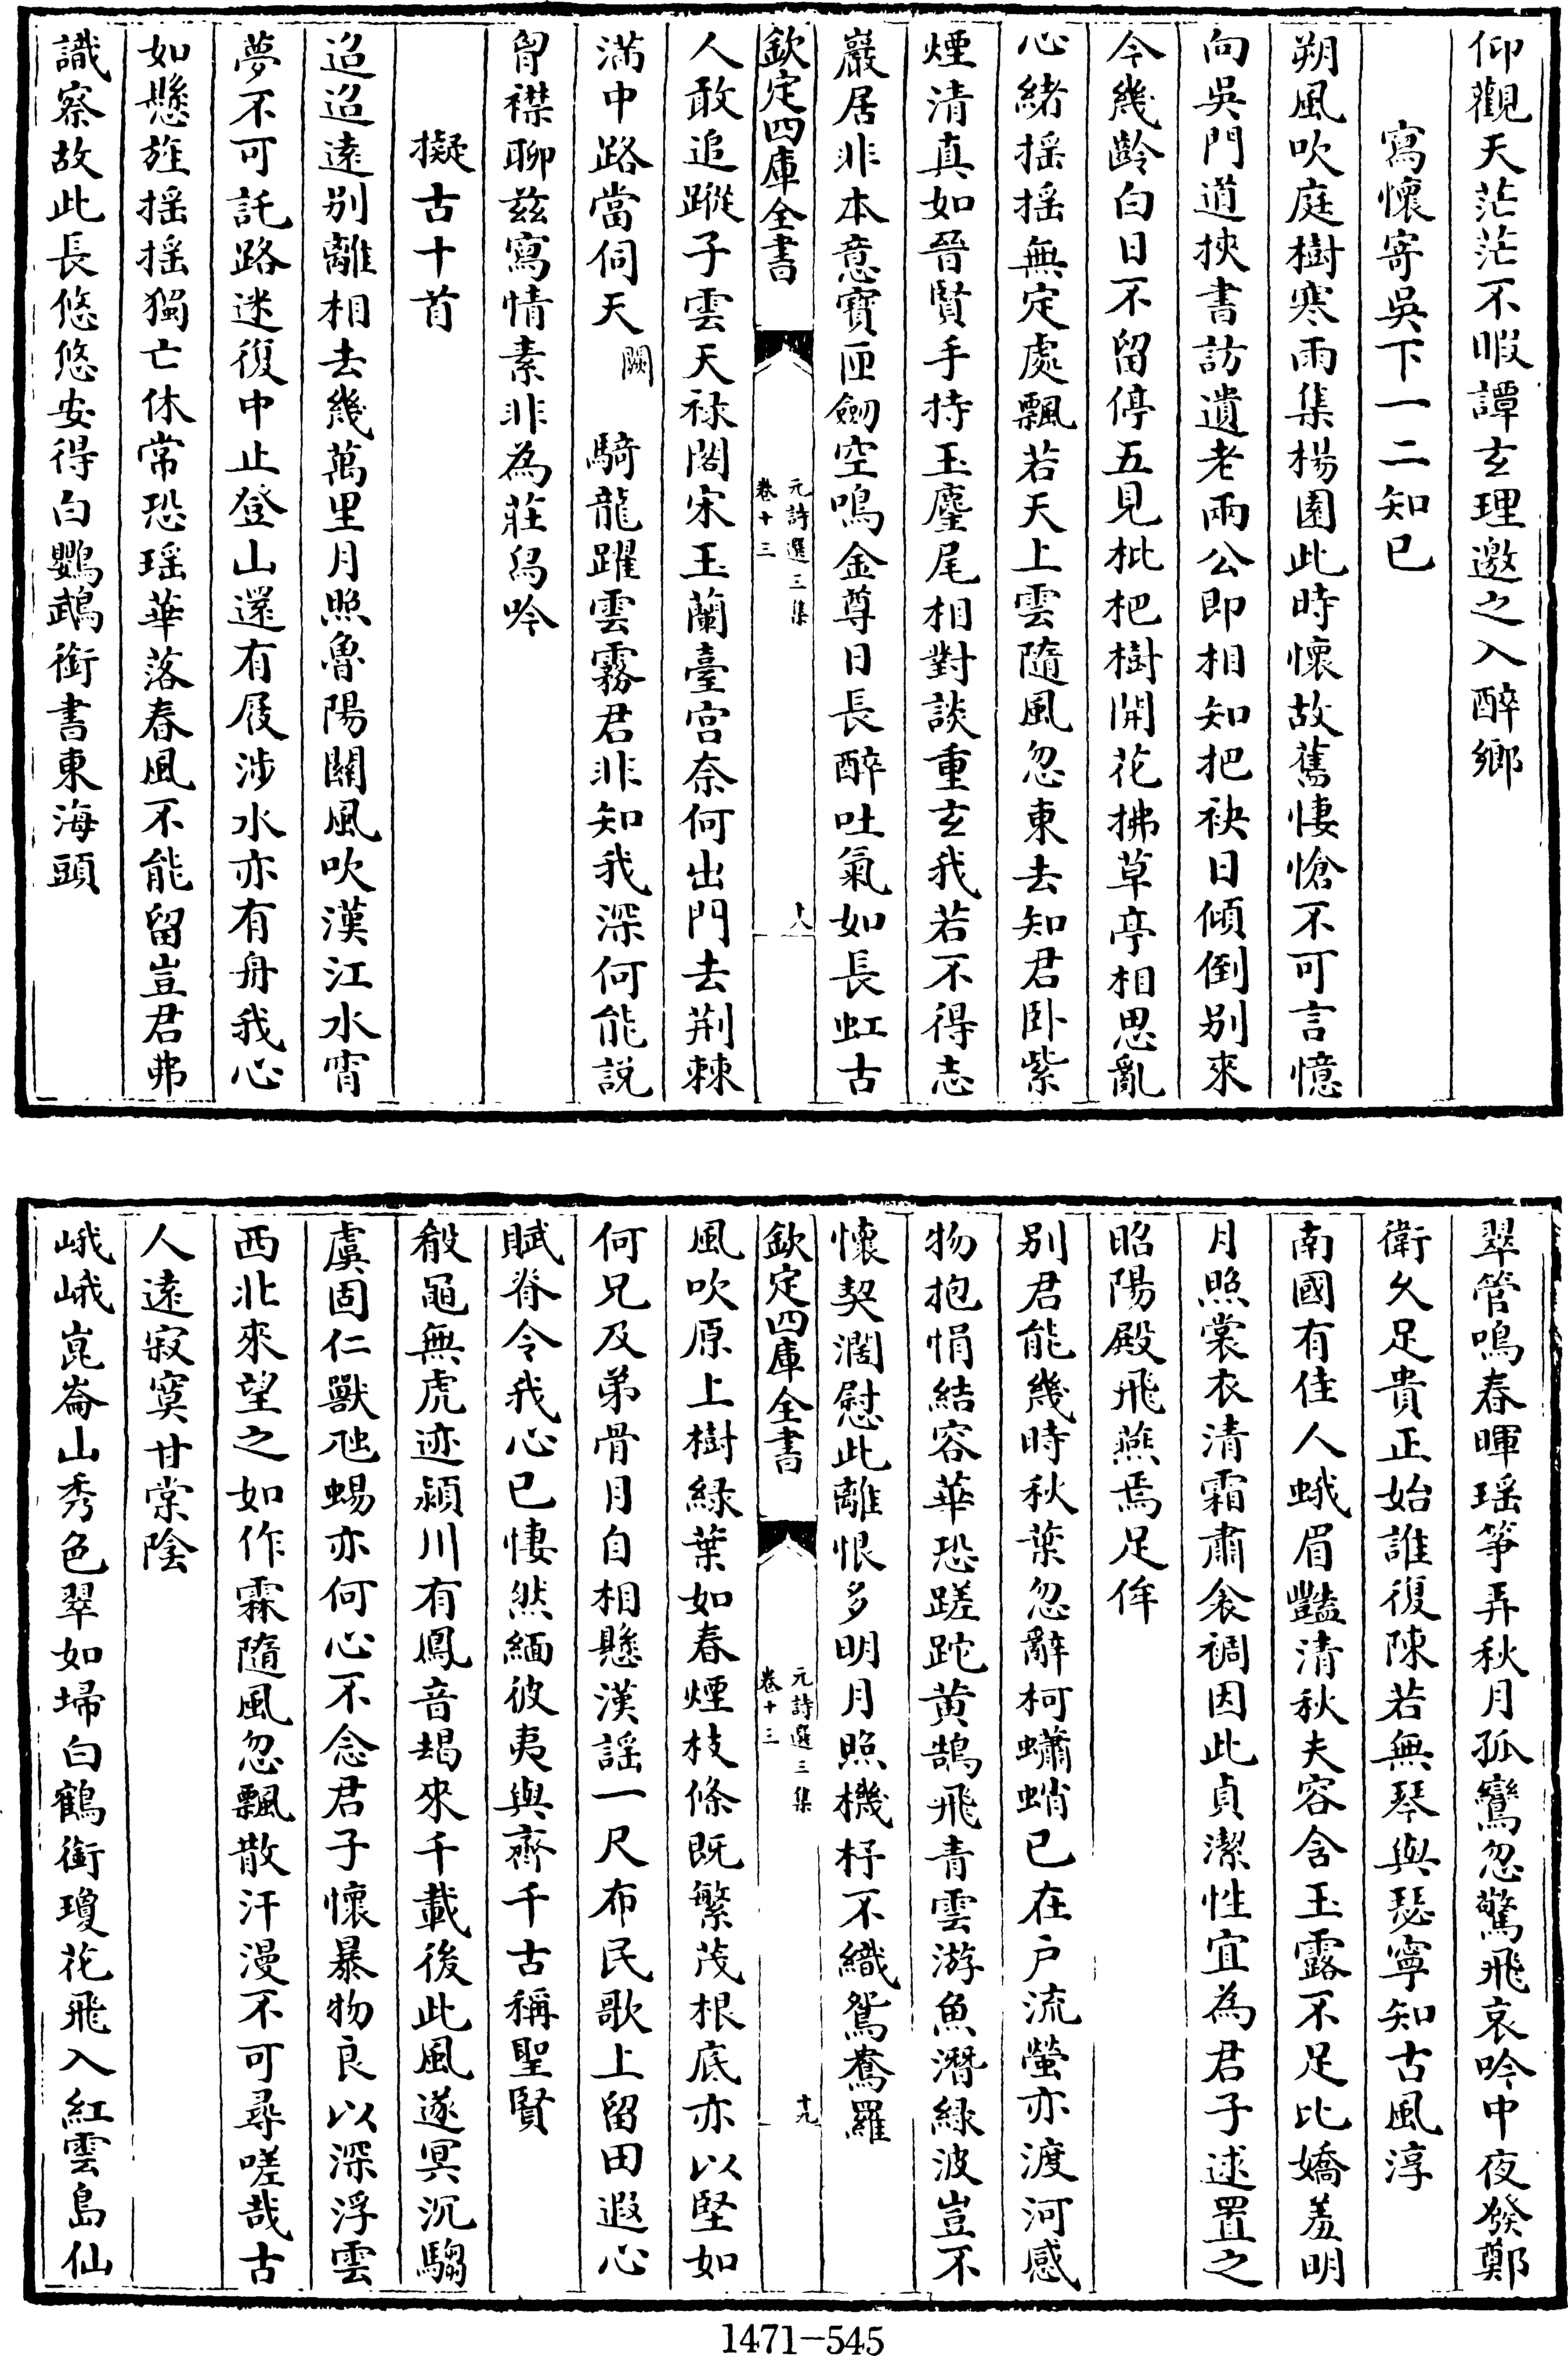 仰觀天茫茫不暇譚玄理邀之入醉鄉
寫懷寄吳下一二知已
朔風吹庭樹寒雨集楊園此時懷故舊悽愴不可言憶
向吳門道挾書訪遺老兩公即相知把袂日傾倒别來
今幾齡白日不留停五見枇杷樹開花拂草亭相思亂
心緒揺揺無定處飄若天上雲隨風忽東去知君卧紫
煙清真如晉賢手持玉麈尾相對談重玄我若不得志
巖居非本意寶匣劒空鳴金尊日長醉吐氣如長虹古
欽定四庫全書
元詩選三集
卷十三
十八
人敢追蹤子雲天禄閣宋玉蘭臺宫奈何出門去荆棘
滿中路當伺天闕騎龍躍雲霧君非知我深何能説
胷襟聊兹寫情素非為莊舄吟
擬古十首
迢迢遠别離相去幾萬里月照魯陽關風吹漢江水宵
夢不可託路迷復中止登山還有屐涉水亦有舟我心
如懸旌揺揺獨亡休常恐瑶華落春風不能留豈君弗
識察故此長悠悠安得白鸚鵡銜書東海頭
翠管鳴春暉瑶筝弄秋月孤鸞忽驚飛哀吟中夜發鄭
衛久足貴正始誰復陳若無琴與瑟寧知古風淳
南國有佳人蛾眉豔清秋夫容含玉露不足比嬌羞明
月照裳衣清霜肅衾裯因此貞潔性宜為君子逑置之
昭陽殿飛燕焉足侔
别君能幾時秋葉忽辭柯蠨蛸已在户流螢亦渡河感
物抱悁結容華恐蹉跎黄鵠飛青雲游魚潛緑波豈不
懷契濶慰此離恨多明月照機杼不織鴛鴦羅
欽定四庫全書
元詩選三集
卷十三
十九
風吹原上樹緑葉如春煙枝條既繁茂根底亦以堅如
何兄及弟骨月自相懸漢謡一尺布民歌上留田遐心
賦脊令我心已悽然緬彼夷與齊千古稱聖賢
殽黽無虎迹潁川有鳳音朅來千載後此風遂冥沉騶
虞固仁獸虺蜴亦何心不念君子懷暴物良以深浮雲
西北來望之如作霖隨風忽飄散汗漫不可尋嗟哉古
人遠寂寞甘棠陰
峨峨崑崙山秀色翠如埽白鶴銜瓊花飛入紅雲島仙
1471-545